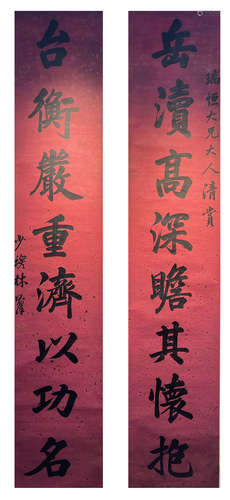 岳瀆高深瞻其懷抱
瑞恒大兄大人清賞
台衡嚴重濟以功名
少穆林